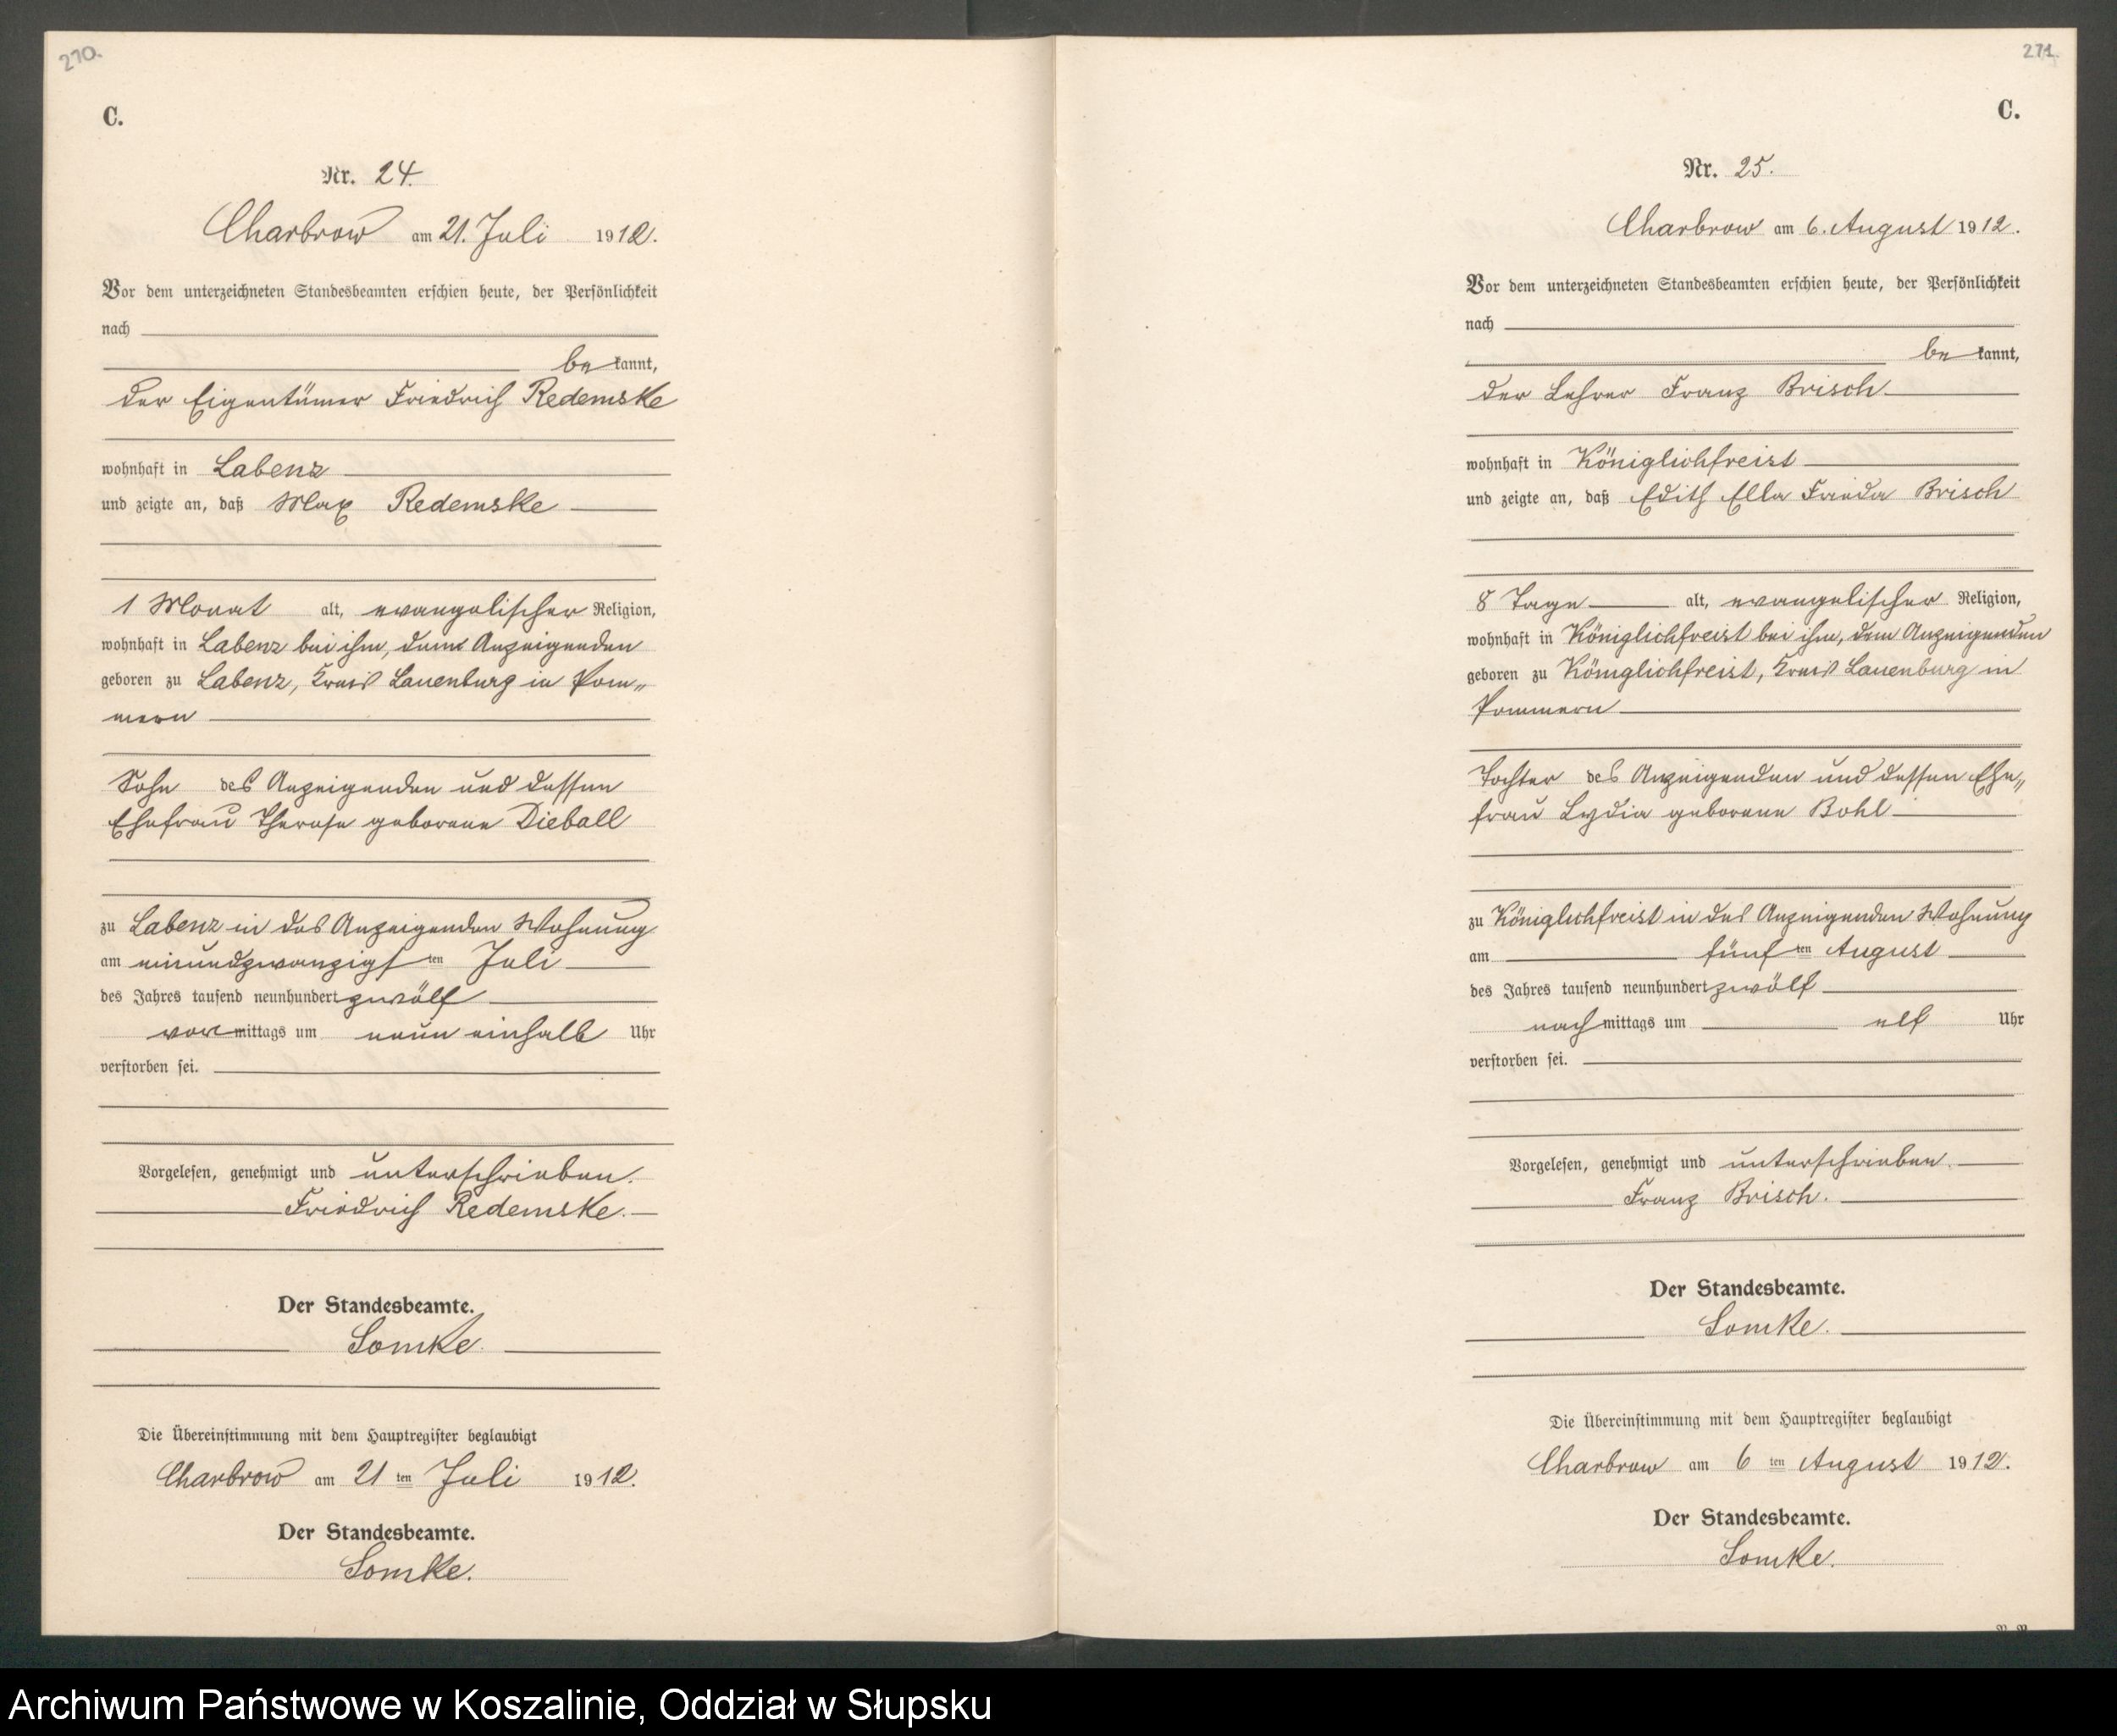 270.
C.
Nr. 24.
Charbrow am 21. Juli 1912.
Vor dem unterzeichneten Standesbeamten erschien heute, der Persönlichkeit
nach
be kannt,
der Eigentümer Friedrich Redemske
wohnhaft in Labenz
und zeigte an, daß Max Redemske
1 Monat alt, evangelischer Religion,
wohnhaft in Labenz bei ihm, dem Anzeigenden
geboren zu Labenz, Kreis Lauenburg in Pom„
mern
Sohn des Anzeigenden und dessen
Ehefrau Therese geborene Dieball
zu Labenz in des Anzeigenden Wohnung
am einundzwanzigsten Juli
des Jahres tausend neunhundert zwölf
vormittags um neun einhalb Uhr
verstorben sei.
Vorgelesen, genehmigt und unterschrieben.
Friedrich Redemske.
Der Standesbeamte.
Somke.
Die Übereinstimmung mit dem Hauptregister beglaubigt
Charbrow am 21 ten Juli 1912.
Der Standesbeamte.
Somke.
271.
C.
Nr. 25.
Charbrow am 6. August 1912.
Vor dem unterzeichneten Standesbeamten erschien heute, der Persönlichkeit
nach
be kannt,
der Lehrer Franz Brisch
wohnhaft in Königlichfreist
und zeigte an, daß Edith Ella Frieda Brisch
8 Tage alt, evangelischer Religion,
wohnhaft in Königlichfreist bei ihm, dem Anzeigenden
geboren zu Königlichfreist, Kreis Lauenburg in
Pommern
Tochter des Anzeigenden und dessen Ehe„
frau Lydia geborene Bohl
zu Königlichfreist in des Anzeigenden Wohnung
am fünften August
des Jahres tausend neunhundert zwölf
nachmittags um elf Uhr
verstorben sei.
Vorgelesen, genehmigt und unterschrieben.
Franz Brisch.
Der Standesbeamte.
Somke.
Die Übereinstimmung mit dem Hauptregister beglaubigt
Charbrow am 6 ten August 1912.
Der Standesbeamte.
Somke.
Archiwum Państwowe w Koszalinie, Oddział w Słupsku